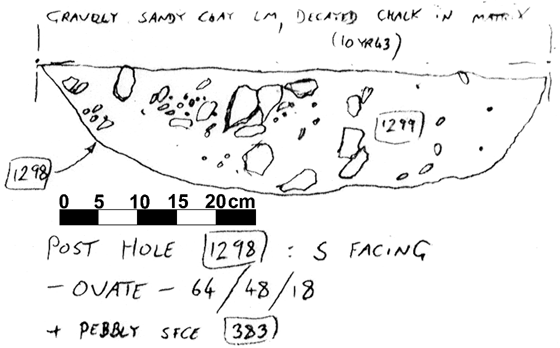 GRAVELLY SANDY CLAY LM, DECAYED CHALK IN MATRIX
(10YR43)
1299
1298
0 5 10 15 20cm
POST HOLE 1298 : S FACING
- OVATE - 64/48/18
+ PEBBLY SFCE 383